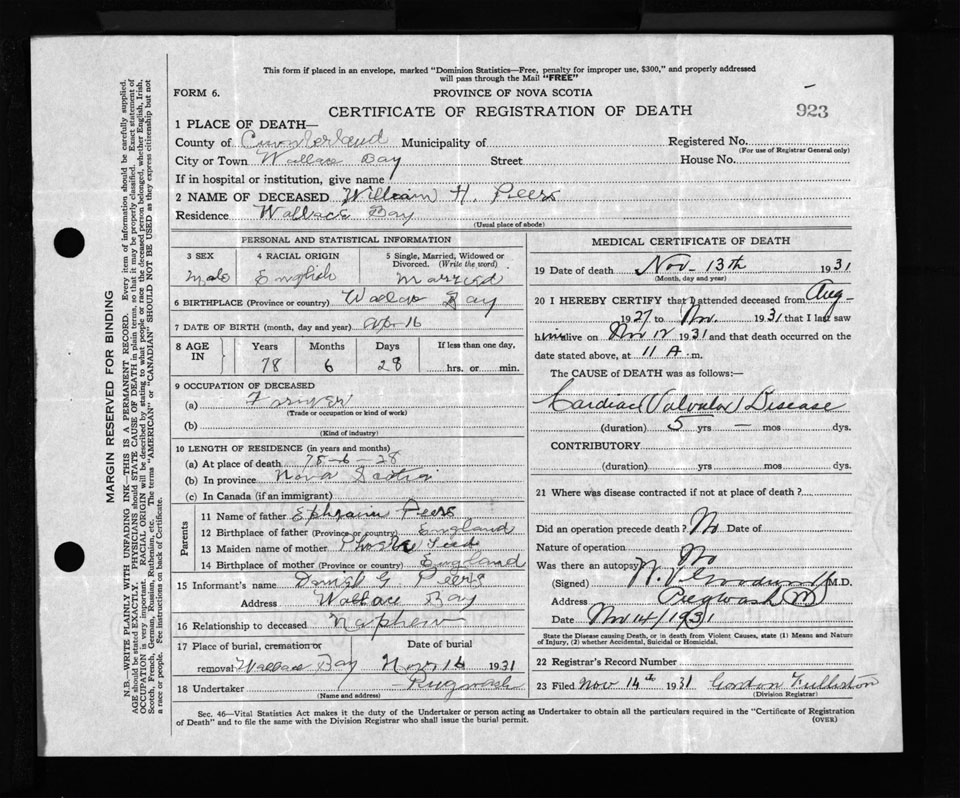 This form if placed in an envelope, marked "Dominion Statistics—Free, penalty for improper use, $300," and properly addressed
will pass through the Mail "FREE"
FORM 6. PROVINCE OF NOVA SCOTIA
CERTIFICATE OF REGISTRATION OF DEATH 923
1 PLACE OF DEATH—
County of Cumberland Municipality of Registered No.
(For use of Registrar General only)
City or Town Wallace Bay Street House No.
If in hospital or institution, give name
2 NAME OF DECEASED William H. Peers
Residence Wallace Bay
(Usual place of abode)
PERSONAL AND STATISTICAL INFORMATION
3 SEX 4 RACIAL ORIGIN 5 Single, Married, Widowed or
Divorced. (Write the word)
Male English Married
6 BIRTHPLACE (Province or country) Wallace Bay
7 DATE OF BIRTH (month, day and year) Apr 16
8 AGE IN Years Months Days If less than one day,
78 6 28 hrs. or min.
9 OCCUPATION OF DECEASED
(a) Farmer
(Trade or occupation or kind of work)
(b)
(Kind of industry)
10 LENGTH OF RESIDENCE (in years and months)
(a) At place of death 78-6-28
(b) In province Nova Scotia
(c) In Canada (if an immigrant)
Parents
11 Name of father Ephraim Peers
12 Birthplace of father (Province or country) England
13 Maiden name of mother
14 Birthplace of mother (Province or country) England
15 Informant's name G Peers
Address Wallace Bay
16 Relationship to deceased Nephew
17 Place of burial, cremation or Date of burial
removal Wallace Bay Nov 16 1931
18 Undertaker Pugwash
(Name and address)
MEDICAL CERTIFICATE OF DEATH
19 Date of death Nov- 13th 1931
(Month, day and year)
20 I HEREBY CERTIFY that I attended deceased from Aug-
1927 to Nov. 1931 that I last saw
him alive on Nov 12 1931 and that death occurred on the
date stated above, at 11 A. m.
The CAUSE of DEATH was as follows:—
Cardiac (Valvular) Disease
(duration) 5 yrs — mos dys.
CONTRIBUTORY
(duration) yrs. mos dys.
21 Where was disease contracted if not at place of death?
Did an operation precede death? No Date of
Nature of operation
Was there an autopsy No
(Signed) M.D.
Address Pugwash
Date Nov 14/1931
State the Disease causing Death, or in death from Violent Causes, state (1) Means and Nature
of Injury, (2) whether Accidental, Suicidal, or Homicidal
22 Registrar's Record Number
23 Filed Nov 14th 1931 Gordon Fullerton
(Division Registrar)
Sec. 46—Vital Statistics Act makes it the duty of the Undertaker or person acting as Undertaker to obtain all the particulars required in the "Certificate of Registration
of Death" and to file the same with the Division Registrar who shall issue the burial permit.
(OVER)
MARGIN RESERVED FOR BINDING
N.B.—WRITE PLAINLY WITH UNFADING INK—THIS IS A PERMANENT RECORD. Every item of information should be carefully supplied.
AGE should be stated EXACTLY. PHYSICIANS should STATE CAUSE OF DEATH in plain terms, so that it may be properly classified. Exact statement of
OCCUPATION is very important. RACIAL ORIGIN will be described by stating to what people or race the deceased person belonged, whether English, Irish,
Scotch, French, German, Russian, Ruthenian, etc. The terms "AMERICAN" or "CANADIAN" SHOULD NOT BE USED as they express citizenship but not
a race or people. See instructions on back of Certificate.